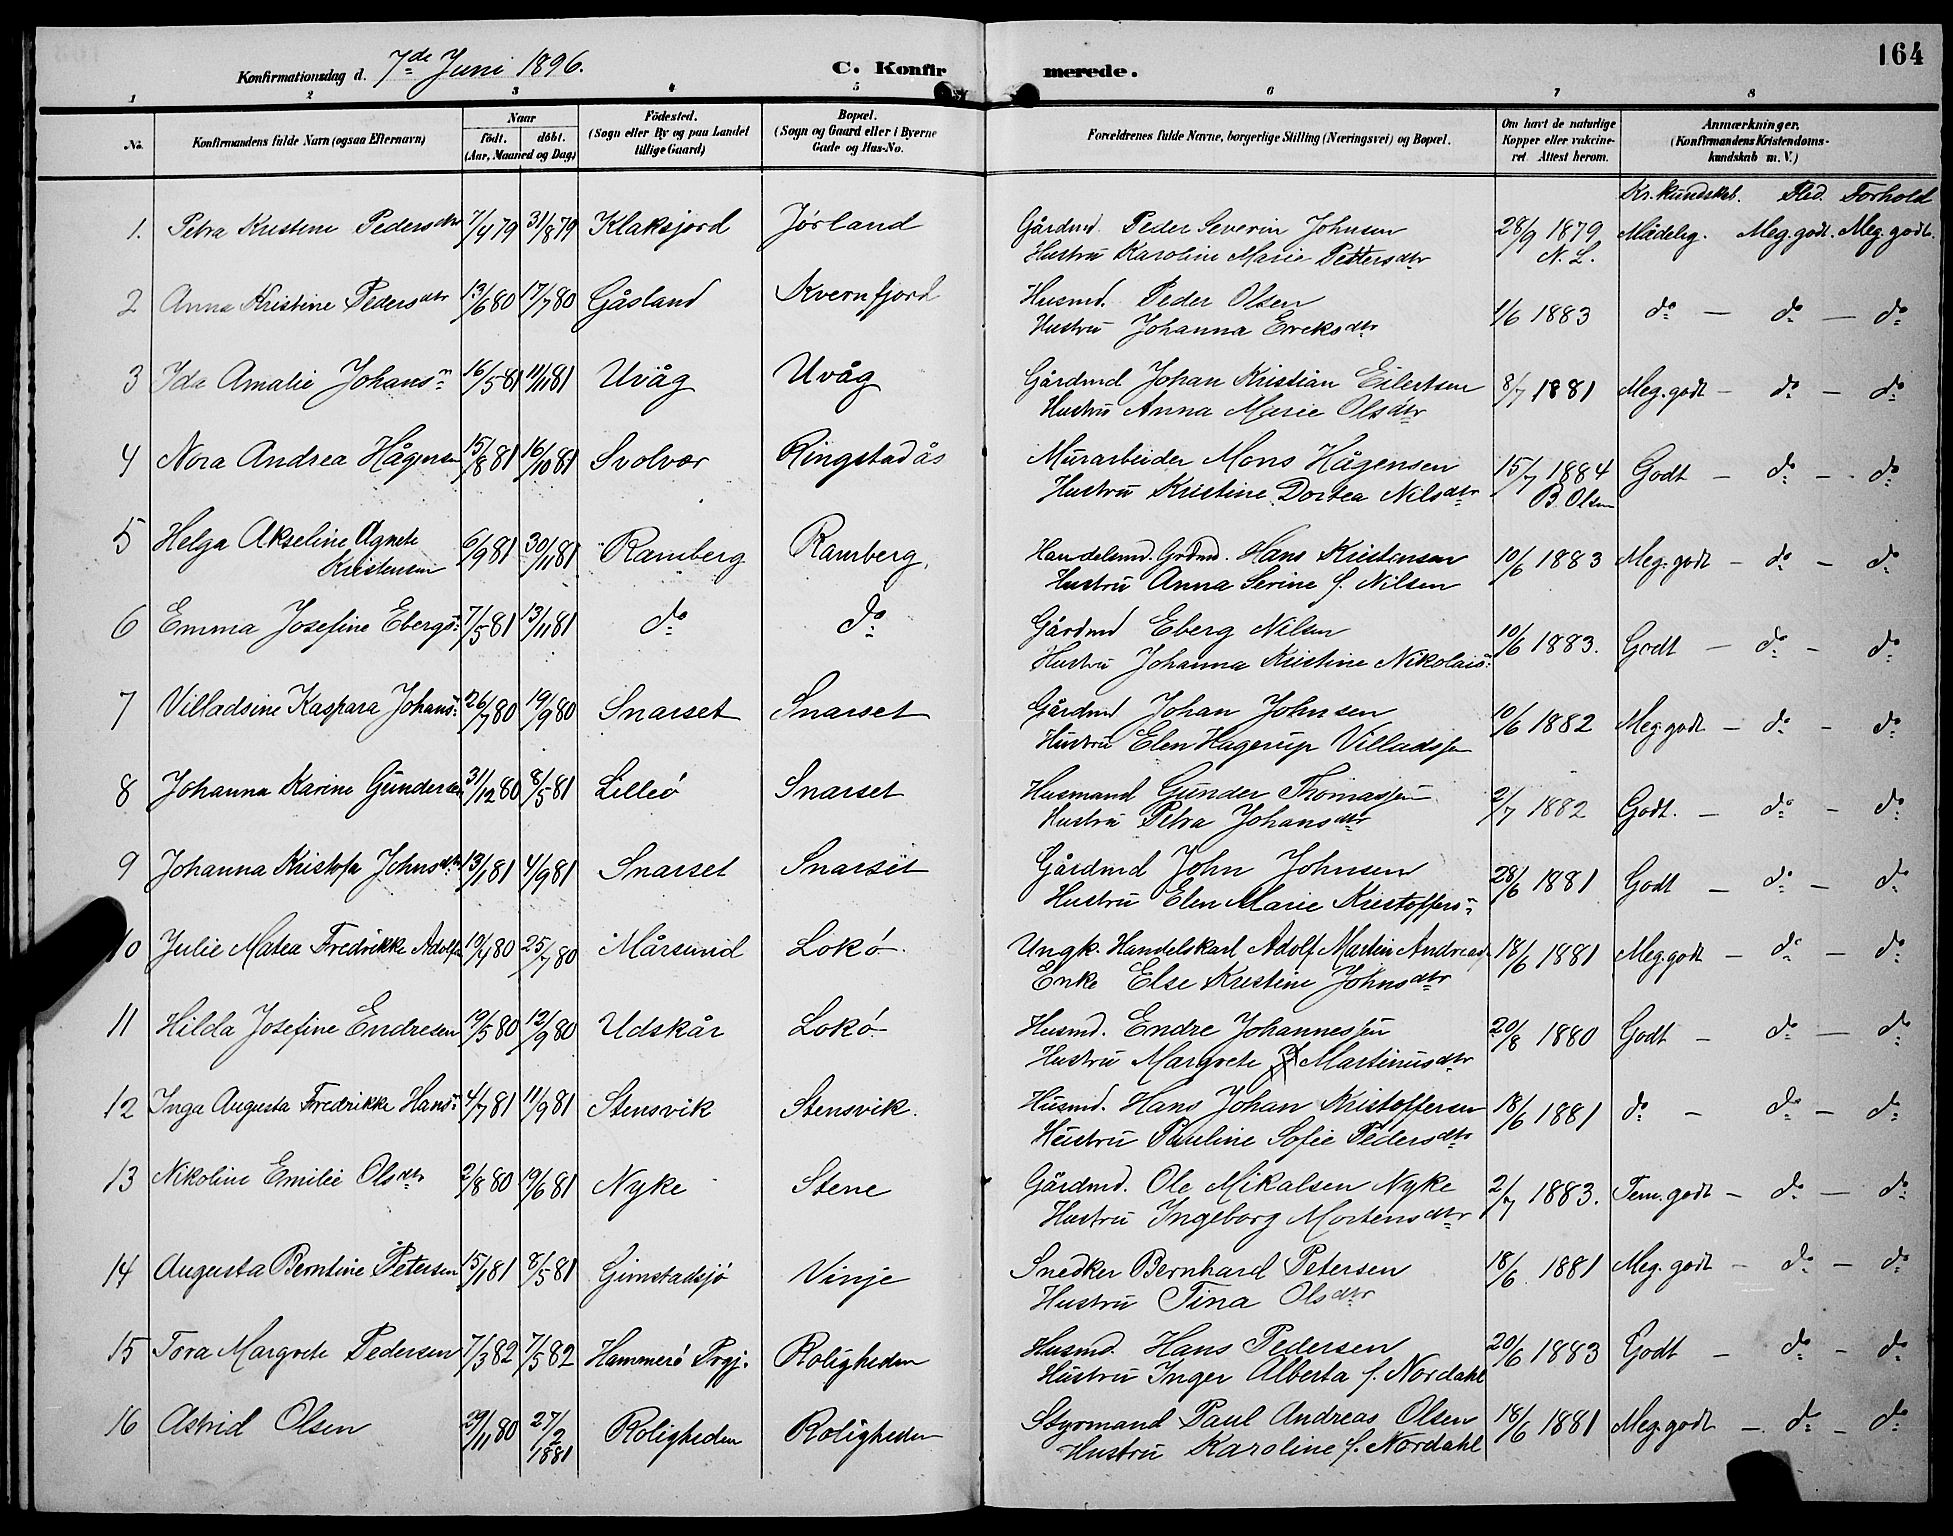 164
Konfirmationsdag d. 7de Juni 1896. C. Konfirmerede.
1 2 3 4 5 6 7 8
No. Konfirmandens fulde Navn (ogsaa Efternavn) Naar födt. döbt. (Aar, Maaned og Dag) Födested. (Sogn eller By og paa Landet tillige Gaard) Bopæl. (Sogn og Gaard eller i Byerne Gade og Hus-No. Forældrenes fulde Navne, borgerlige Stilling (Næringsvei) og Bopæl. Om havt de naturlige Kopper eller vakcineret. Attest herom. Anmærkninger. (Konfirmandens Kristendomskundskab m. V.)
Kr.kundskab. Flid. Forhold
1. Petra Kristine Pedersdtr 7/4 79 31/8 79 Klaksjord Jørland Gårdmd. Peder Severin Johnsen 28/9 1879 Mådelig. Meg. godt. Meg. godt.
Hustru Karoline Marie Pettersdtr N. L.
2 Anna Kristine Pedersdtr 13/6 80 17/7 80 Gåsland Kvernfjord Husmd. Peder Olsen 1/6 1883 do - do - do
Hustru Johanna Ereksdtr
3 Ida Amalie Johans: 16/5 81 11/11 81 Uvåg Uvåg Gårdmd Johan Kristian Eilertsen 8/7 1881 Meg. godt - do - do
Hustru Anna Marie Olsdtr
4 Nora Andrea Hågensen 15/8 81 16/10 81 Svolvær Ringstadås Murarbeider Mons Hågensen 15/7 1884 Godt - do - do
Hustru Kristine Dortea Nilsdtr B. Olsen
5 Helga Akseline Agnete Kristensen 6/9 81 30/11 81 Ramberg Ramberg. Handelsmd. Grdmd. Hans Kristensen 10/6 1883 Meg. godt - do - do
Hustru Anna Serine f. Nilsen
6 Emma Josefine Ebergs: 7/5 81 13/11 81 do do Gårdmd Eberg Nilsen 10/6 1883. Godt - do - do
Hustru Johanna Kristine Nikolais:
7 Villadsine Kaspara Johans: 26/7 80 19/9 80 Snarset Snarset Gårdmd Johan Johnsen 10/6 1882 Meg. godt - do - do
Hustru Elen Hagerup Villadsen
8 Johanna Karine Gundersen 31/12 80 8/5 81 Lilleö Snarset Husmand Gunder Thomassen 2/7 1882 Godt. - do - do
Hustru Petra Johansdtr
9 Johanna Kristofa Johnsdtr 13/1 81 4/9 81 Snarset Snarset Gårdmd John Johnsen 28/6 1881 Godt - do - do
Hustru Elen Marie Kristoffers:
10 Julie Matea Fredrikke Adolfs 19/4 80 25/7 80 Mårsund Lokö Ungk. Handelskarl Adolf Martin Andreas. 18/6 1881 Meg. godt - do - do
Enke Else Kristine Johnsdtr
11 Hilda Josefine Endresen 19/5 80 12/9 80 Udskår Lokö Husmd. Endre Johannessen 20/8 1880 Godt - do - do
Hustru Margrete Martinusdtr
12 Inga Augusta Fredrikke Hans: 4/7 81 11/9 81 Stensvik Stensvik. Husmd. Hans Johan Kristoffersen 18/6 1881 do - do - do
Hustru Pauline Sofie Pedersdtr
13 Nikoline Emilie Olsdtr 2/8 80 19/6 81 Nyke Stene Gårdmd. Ole Mikalsen Nyke 2/7 1883. Tem. godt - do - do
Hustru Ingeborg Mortensdtr
14 Augusta Berntine Petersen 15/1 81 8/5 81 Gimstadsjö Vinje Snedker Bernhard Petersen 18/6 1881 Meg. godt - do - do
Hustru Tina Olsdtr
15 Tora Margrete Pedersen 7/3 82 7/5 82 Hammerö Prgj. Roligheden Husmd. Hans Pedersen 20/6 1883 Godt - do - do
Hustru Inger Alberta f. Nordahl
16 Astrid Olsen 29/11 80 27/2 1881 Roligheden Roligheden Styrmand Paul Andreas Olsen 18/6 1881 Meg. godt - do - do
Hustru Karoline f. Nordahl